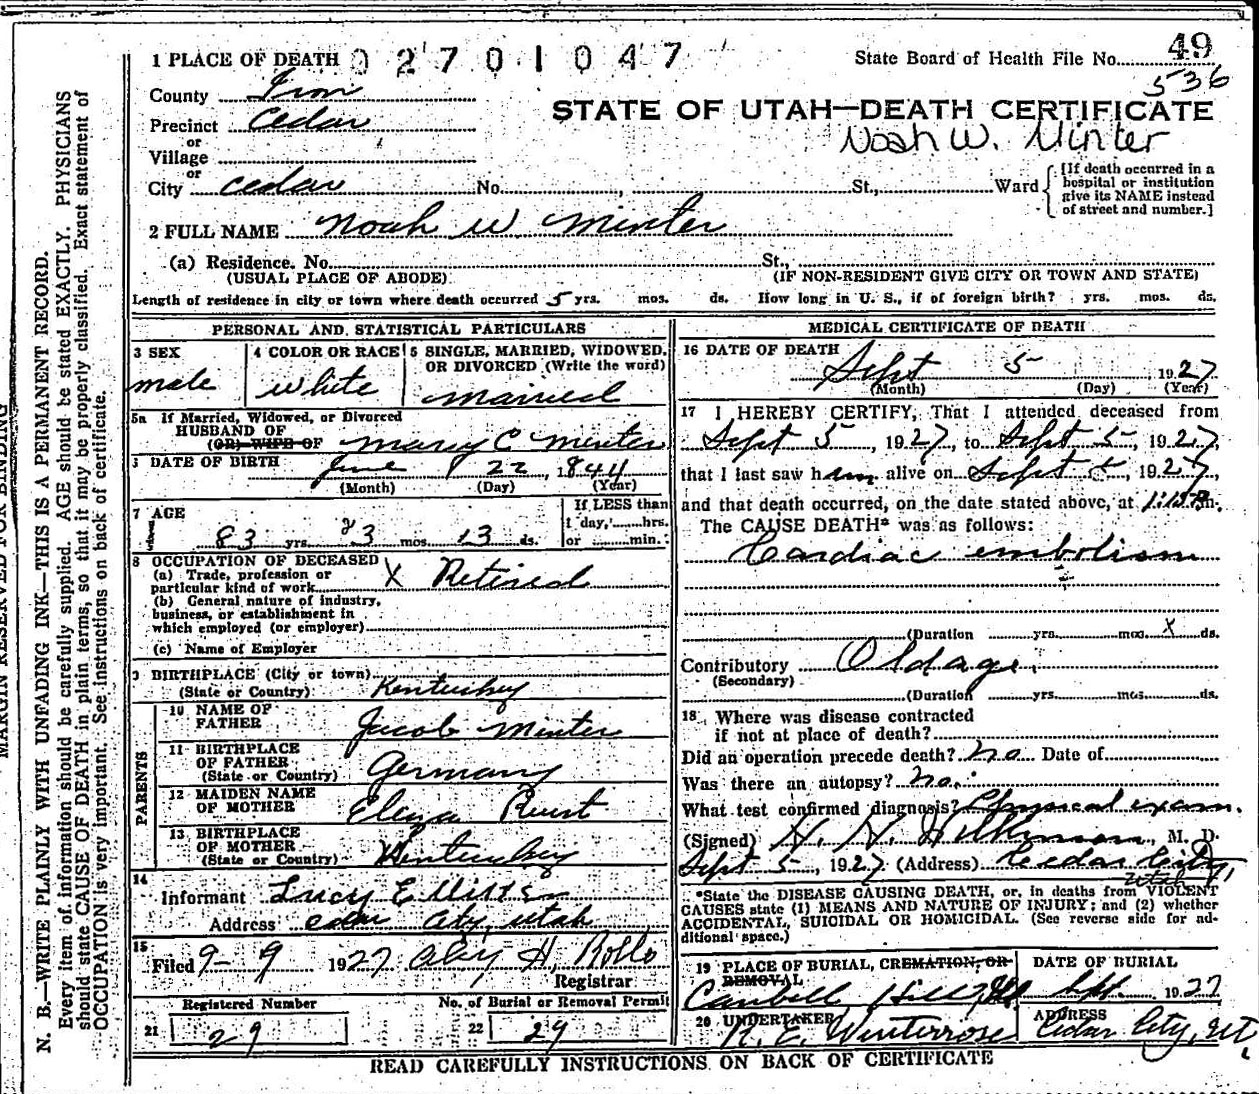 1 PLACE OF DEATH 02701047 State Board of Health File No. 49
536
County Iron
STATE OF UTAH—DEATH CERTIFICATE
Precinct Cedar
Noah W. Minter
or
Village
or
City Cedar No. , St., Ward
[If death occurred in a
hospital or institution
give its NAME instead
of street and number.]
2 FULL NAME Noah W Minter
(a) Residence. No. St.,
(USUAL PLACE OF ABODE) (IF NON-RESIDENT GIVE CITY OR TOWN AND STATE)
Length of residence in city or town where death occurred 5 yrs. mos. ds. How long in U. S., if of foreign birth? yrs. mos. ds.
PERSONAL AND STATISTICAL PARTICULARS
3 SEX
male
4 COLOR OR RACE
white
5 SINGLE, MARRIED, WIDOWED,
OR DIVORCED (Write the word)
married
5a If Married, Widowed, or Divorced
HUSBAND OF
(OR) WIFE OF Mary C Minter
DATE OF BIRTH June 22, 1844
(Month) (Day) (Year)
7 AGE
83 yrs. 3 mos. 13 ds.
If LESS than
1 day, hrs.
or min.
8 OCCUPATION OF DECEASED
(a) Trade, profession or
particular kind of work X Retired
(b) General nature of industry,
business, or establishment in
which employed (or employer)
(c) Name of Employer
9 BIRTHPLACE (City or town)
(State or Country) Kentuckey
PARENTS
10 NAME OF
FATHER Jacob Minter
11 BIRTHPLACE
OF FATHER
(State or Country) Germany
12 MAIDEN NAME
OF MOTHER
13 BIRTHPLACE
OF MOTHER
(State or Country) Kentuckey
14
Informant Lucy E
Address Cedar City, Utah
15
Filed 9-9 1927 H. Rollo
Registrar
Registered Number No. of Burial or Removal Permit
21 29 22 29
MEDICAL CERTIFICATE OF DEATH
16 DATE OF DEATH
Sept 5 1927
(Month) (Day) (Year)
17 I HEREBY CERTIFY, That I attended deceased from
Sept 5, 1927, to Sept 5, 1927,
that I last saw him alive on Sept 5, 1927,
and that death occurred, on the date stated above, at 1:15 m.
The CAUSE DEATH* was as follows:
Cardiac embolism
(Duration yrs. mos. X ds.
Contributory Old age.
(Secondary)
(Duration yrs. mos. ds.
18 Where was disease contracted
if not at place of death?
Did an operation precede death? no Date of
Was there an autopsy? no.
What test confirmed diagnosis? Physical exam.
(Signed) Wilkinson, M. D.
Sept 5, 1927 (Address) Cedar City
Utah
*State the DISEASE CAUSING DEATH, or, in deaths from VIOLENT
CAUSES state (1) MEANS AND NATURE OF INJURY; and (2) whether
ACCIDENTAL, SUICIDAL OR HOMICIDAL. (See reverse side for ad-
ditional space.)
19 PLACE OF BURIAL, CREMATION, OR
REMOVAL
DATE OF BURIAL
Hill 1927
20 UNDERTAKER
ADDRESS
R. E. Winterrose Cedar City, Ut
READ CAREFULLY INSTRUCTIONS ON BACK OF CERTIFICATE
MARGIN RESERVED FOR BINDING
N. B.—WRITE PLAINLY WITH UNFADING INK—THIS IS A PERMANENT RECORD.
Every item of information should be carefully supplied. AGE should be stated EXACTLY. PHYSICIANS
should state CAUSE OF DEATH in plain terms, so that it may be properly classified. Exact statement of
OCCUPATION is very important. See instructions on back of certificate.